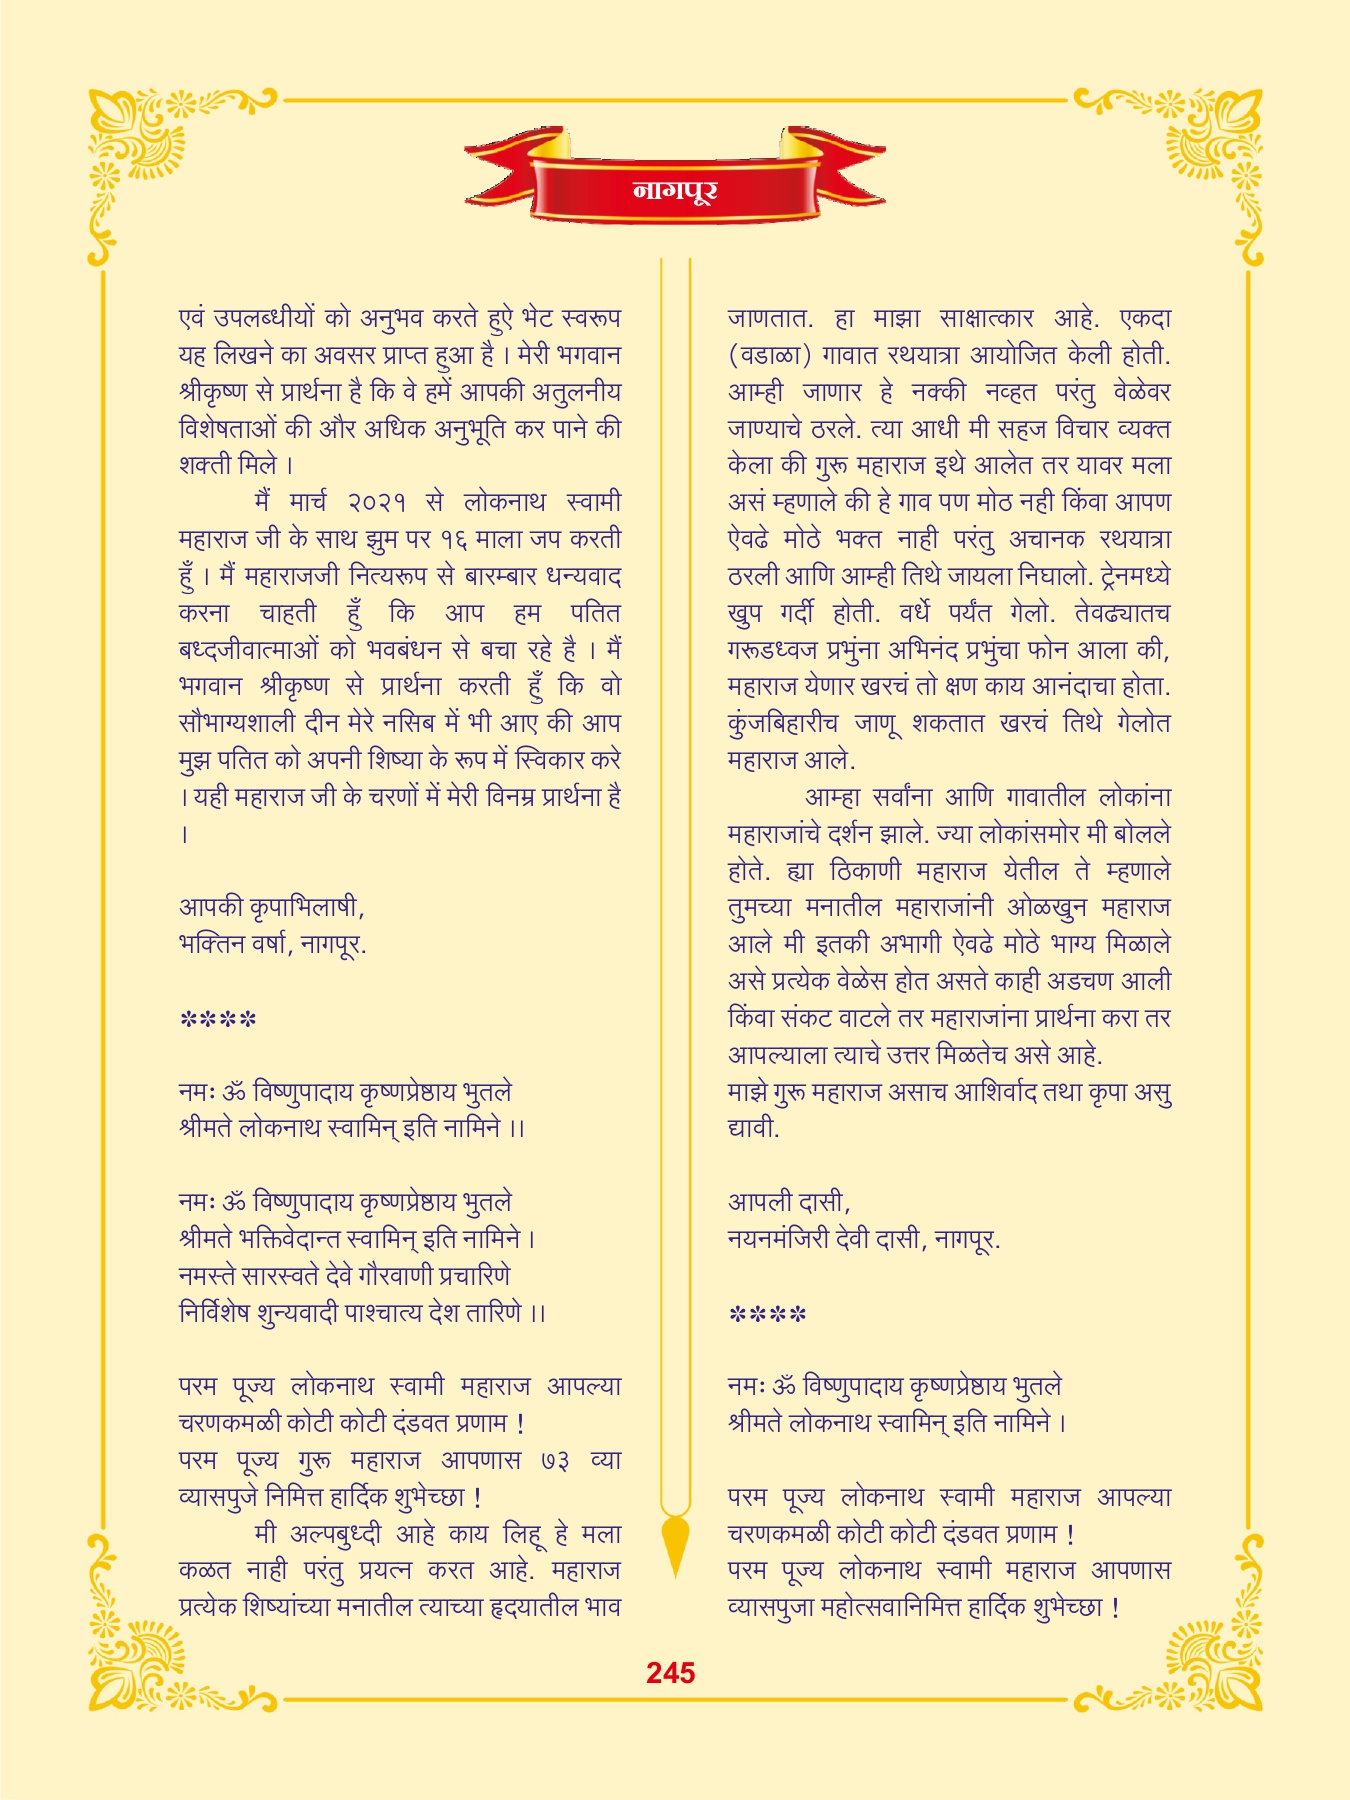 नागपूर
एवं उपलब्धीयों को अनुभव करते हुऐ भेट स्वरूप
यह लिखने का अवसर प्राप्त हुआ है । मेरी भगवान
श्रीकृष्ण से प्रार्थना है कि वे हमें आपकी अतुलनीय
विशेषताओं की और अधिक अनुभूति कर पाने की
शक्ती मिले ।
मैं मार्च २०२१ से लोकनाथ स्वामी
महाराज जी के साथ झुम पर १६ माला जप करती
हुँ । मैं महाराजजी नित्यरूप से बारम्बार धन्यवाद
करना चाहती हुँ कि आप हम पतित
बध्दजीवात्माओं को भवबंधन से बचा रहे है । मैं
भगवान श्रीकृष्ण से प्रार्थना करती हुँ कि वो
सौभाग्यशाली दीन मेरे नसिब में भी आए की आप
मुझ पतित को अपनी शिष्या के रूप में स्विकार करे
। यही महाराज जी के चरणों में मेरी विनम्र प्रार्थना है
।
आपकी कृपाभिलाषी,
भक्तिन वर्षा, नागपूर.
****
नमः ॐ विष्णुपादाय कृष्णप्रेष्ठाय भुतले
श्रीमते लोकनाथ स्वामिन् इति नामिने ।।
नमः ॐ विष्णुपादाय कृष्णप्रेष्ठाय भुतले
श्रीमते भक्तिवेदान्त स्वामिन् इति नामिने ।
नमस्ते सारस्वते देवे गौरवाणी प्रचारिणे
निर्विशेष शुन्यवादी पाश्चात्य देश तारिणे ।।
परम पूज्य लोकनाथ स्वामी महाराज आपल्या
चरणकमळी कोटी कोटी दंडवत प्रणाम !
परम पूज्य गुरू महाराज आपणास ७३ व्या
व्यासपुजे निमित्त हार्दिक शुभेच्छा !
मी अल्पबुध्दी आहे काय लिहू हे मला
कळत नाही परंतु प्रयत्न करत आहे. महाराज
प्रत्येक शिष्यांच्या मनातील त्याच्या हृदयातील भाव
जाणतात. हा माझा साक्षात्कार आहे. एकदा
(वडाळा) गावात रथयात्रा आयोजित केली होती.
आम्ही जाणार हे नक्की नव्हत परंतु वेळेवर
जाण्याचे ठरले. त्या आधी मी सहज विचार व्यक्त
केला की गुरू महाराज इथे आलेत तर यावर मला
असं म्हणाले की हे गाव पण मोठ नही किंवा आपण
ऐवढे मोठे भक्त नाही परंतु अचानक रथयात्रा
ठरली आणि आम्ही तिथे जायला निघालो. ट्रेनमध्ये
खुप गर्दी होती. वर्धे पर्यंत गेलो. तेवढ्यातच
गरूडध्वज प्रभुंना अभिनंद प्रभुंचा फोन आला की,
महाराज येणार खरचं तो क्षण काय आनंदाचा होता.
कुंजबिहारीच जाणू शकतात खरचं तिथे गेलोत
महाराज आले.
आम्हा सर्वांना आणि गावातील लोकांना
महाराजांचे दर्शन झाले. ज्या लोकांसमोर मी बोलले
होते. ह्या ठिकाणी महाराज येतील ते म्हणाले
तुमच्या मनातील महाराजांनी ओळखुन महाराज
आले मी इतकी अभागी ऐवढे मोठे भाग्य मिळाले
असे प्रत्येक वेळेस होत असते काही अडचण आली
किंवा संकट वाटले तर महाराजांना प्रार्थना करा तर
आपल्याला त्याचे उत्तर मिळतेच असे आहे.
माझे गुरू महाराज असाच आशिर्वाद तथा कृपा असु
द्यावी.
आपली दासी,
नयनमंजिरी देवी दासी, नागपूर.
****
नमः ॐ विष्णुपादाय कृष्णप्रेष्ठाय भुतले
श्रीमते लोकनाथ स्वामिन् इति नामिने ।
परम पूज्य लोकनाथ स्वामी महाराज आपल्या
चरणकमळी कोटी कोटी दंडवत प्रणाम !
परम पूज्य लोकनाथ स्वामी महाराज आपणास
व्यासपुजा महोत्सवानिमित्त हार्दिक शुभेच्छा !
245